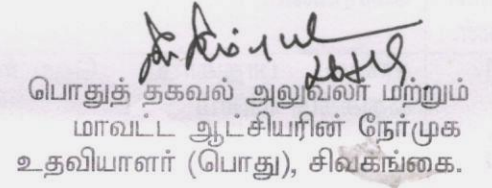 பொதுத் தகவல் அலுவலர் மற்றும்
மாவட்ட ஆட்சியரின் நேர்முக
உதவியாளர் (பொது), சிவகங்கை.